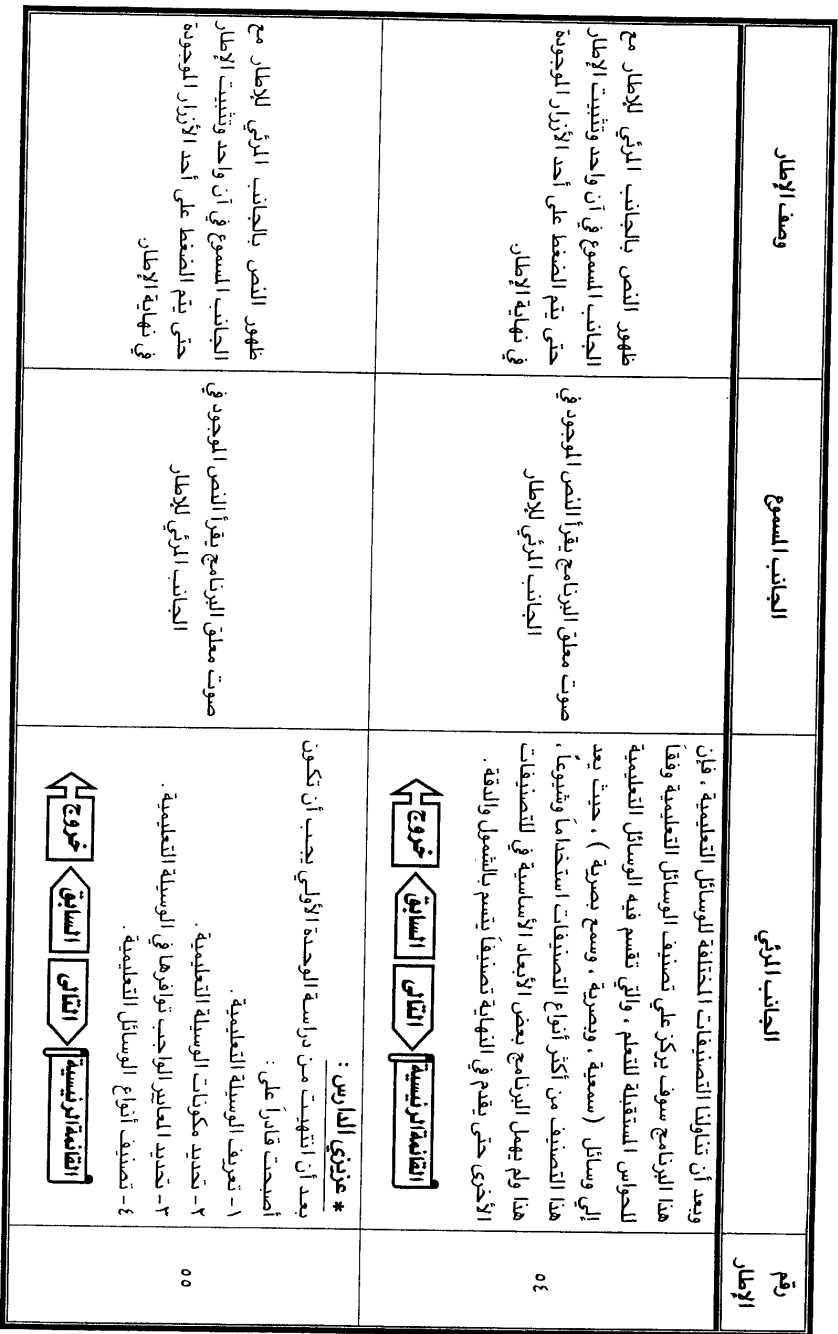 رقم
الإطار
الجانب المرئي
الجانب المسموع
وصف الإطار
٥٤
وبعد أن تناولنا التصنيفات المختلفة للوسائل التعليمية ، فإن
هذا البرنامج سوف يركز علي تصنيف الوسائل التعليمية وفقاً
للحواس المستقبلة للتعلم ، والتي تقسم فيه الوسائل التعليمية
إلي وسائل ( سمعية ، وبصرية ، وسمع بصرية ) ، حيث يعد
هذا التصنيف من أكثر أنواع التصنيفات استخداماً وشيوعاً ،
هذا ولم يهمل البرنامج بعض الأبعاد الأساسية في للتصنيفات
الأخرى حتى يقدم في النهاية تصنيفاً يتسم بالشمول والدقة .
القائمة الرئيسية
التالى
السابق
خروج
صوت معلق البرنامج يقرأ النص الموجود في
الجانب المرئي للإطار
ظهور النص بالجانب المرئي للإطار مع
الجانب المسموع في آن واحد وتثبيت الإطار
حتى يتم الضغط على أحد الأزرار الموجودة
في نهاية الإطار
٥٥
* عزيزي الدارس :
بعد أن انتهيت من دراسة الوحدة الأولي يجب أن تكون
أصبحت قادراً على :
١- تعريف الوسيلة التعليمية .
٢- تحديد مكونات الوسيلة التعليمية .
٣- تحديد المعايير الواجب توافرها في الوسيلة التعليمية .
٤- تصنيف أنواع الوسائل التعليمية .
القائمة الرئيسية
التالى
السابق
خروج
صوت معلق البرنامج يقرأ النص الموجود في
الجانب المرئي للإطار
ظهور النص بالجانب المرئي للإطار مع
الجانب المسموع في آن واحد وتثبيت الإطار
حتى يتم الضغط على أحد الأزرار الموجودة
في نهاية الإطار